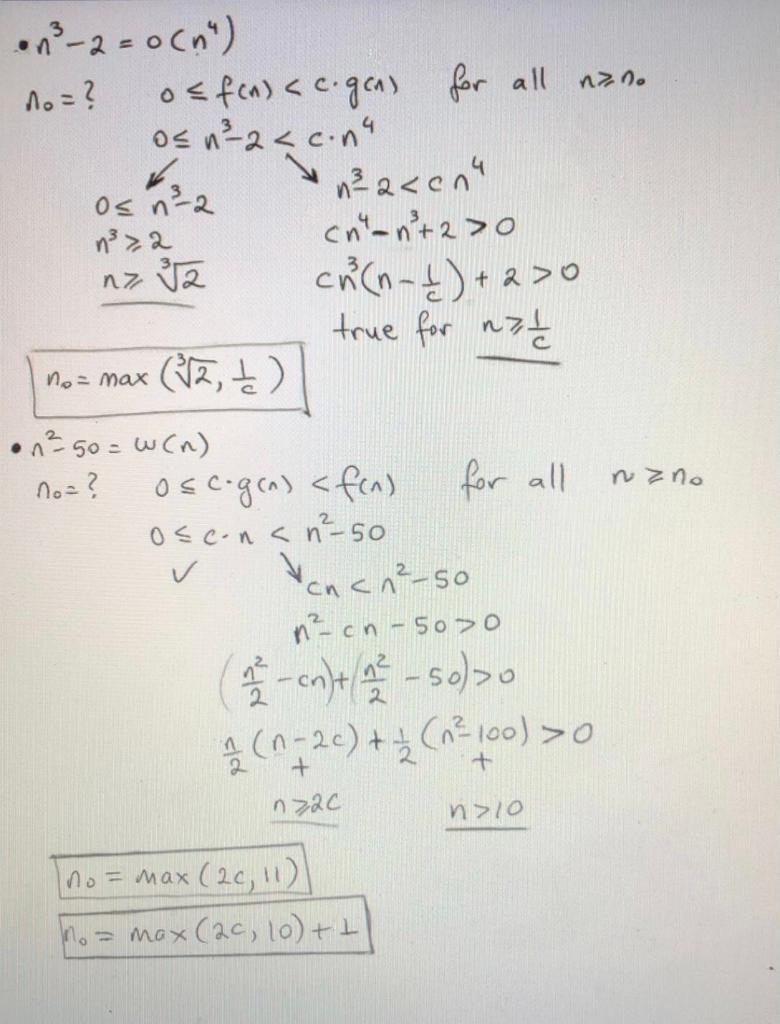 • n³ - 2 = o(n⁴)
n₀ = ? 0 ≤ f(n) < c·g(n) for all n ≥ n₀
0 ≤ n³ - 2 < c·n⁴
0 ≤ n³ - 2 n³ - 2 < cn⁴
n³ ≥ 2 cn⁴ - n³ + 2 > 0
n ≥ ∛2 cn³(n - 1/c) + 2 > 0
true for n ≥ 1/c
n₀ = max (∛2, 1/c)
• n² - 50 = w(n)
n₀ = ? 0 ≤ c·g(n) < f(n) for all n ≥ n₀
0 ≤ c·n < n² - 50
✓ cn < n² - 50
n² - cn - 50 > 0
(n²/2 - cn) + (n²/2 - 50) > 0
n/2 (n - 2c) + 1/2 (n² - 100) > 0
+ +
n ≥ 2c n > 10
n₀ = max (2c, 11)
n₀ = max (2c, 10) + 1